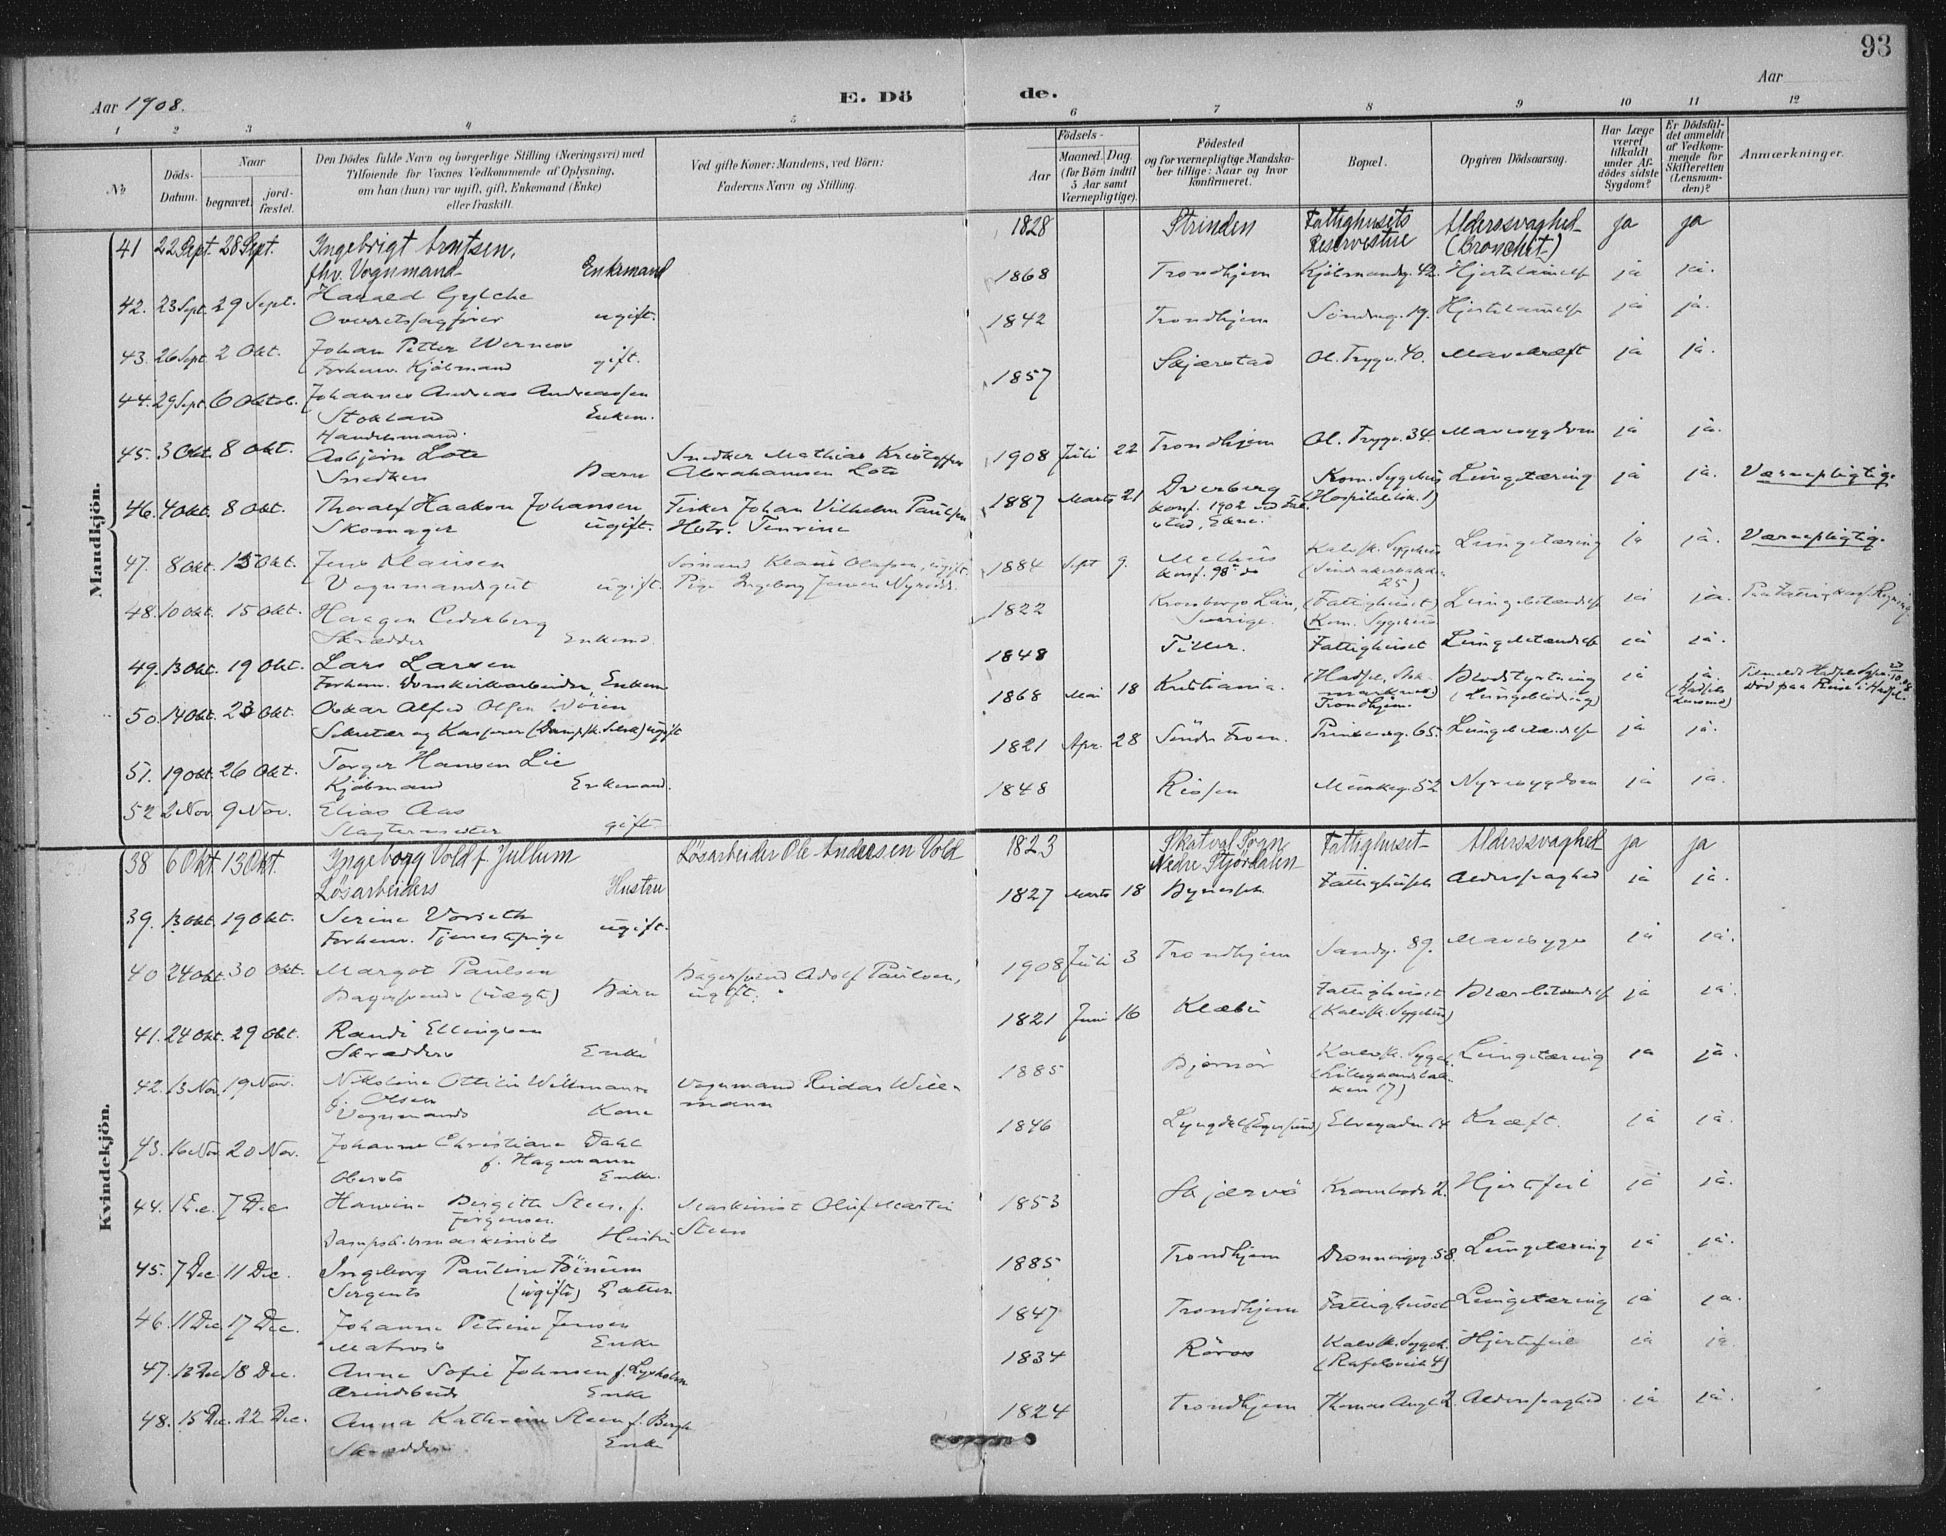 93
Aar 1908.
E. Dö de.
Aar
1 2 3 4 5 6 7 8 9 10 11 12
№
Döds-Datum.
Naar
begravet.
jord-fæstet.
Den Dödes fulde Navn og borgerlige Stilling (Næringsvei) med
Tilföiende for Voxnes Vedkommende af Oplysning,
om han (hun) var ugift, gift, Enkemand (Enke)
eller fraskilt.
Ved gifte Koner: Mandens, ved Börn:
Faderens Navn og Stilling.
Födsels-
Aar
Maaned. Dag.
(for Börn indtil
5 Aar samt
Værnepligtige).
Födested
og for værnepligtige Mandska-
ber tillige: Naar og hvor
konfirmeret.
Bopæl.
Opgiven Dödsaarsag.
Har Læge
været
tilkaldt
under Af-
dödes sidste
Sygdom?
Er Dödsfal-
det anmeldt
af Vedkom-
mende for
Skifteretten
(Lensman-
den)?
Anmærkninger.
Mandkjön.
41 22 Sept. 28 Sept. Ingebrigt Arntsen, 1828 Strinden Fattighusets Alderssvaghed ja ja
fhv. Vognmand Enkemand Reservestue (Bronchit)
42. 23 Sept. 29 Sept. Harald Gylche 1868 Trondhjem Kjöbmandsg. 42. Hjertelammelse ja ja.
Overretssagförer ugift.
43. 26 Sept. 2 Okt. Johan Petter Werness 1842 Trondhjem Söndreg. 19. Hjertelammelse ja ja.
Forhenv. Kjöbmand gift.
44. 29 Sept. 6 Oktob. Johannes Andreas Andreassen 1857 Skjærstad Ol. Trygv. 40. Mavekræft ja ja.
Stokland Enkem.
Handelsmand.
45. 3 Okt. 8 Okt. Asbjörn Lote Snedker Mathias Kristoffer 1908 Juli 22 Trondhjem Ol. Trygv. 34. Mavesygdom ja ja.
Snedkers Barn Abrahamsen Lote
46. 4 Okt. 8 Okt. Thoralf Haakon Johansen Fisker Johan Vilhelm Paulsen 1887 Marts 21 Dverberg Kom. Sygehus Lungetæring ja ja. Værnepligtig.
Skomager ugift. Hstr. Tenrine konf. 1902 (Hospitalslök. 1)
47. 8 Okt. 15 Okt. Jens Klausen Sömand Klaus Olafsen, ugift. 1884 Sept 9. Melhus Kalvsk. Sygehus Lungetæring ja ja. Værnepligtig.
Vognmandsgut ugift. Pige Ingeborg konf. 98 25)
48. 10 Okt. 15 Okt. Haagen Cederberg 1822 Kronobergs Län, (Fattighuset) Lungebetændelse ja ja.
Skrædder Enkemd. Sverige. Kom. Sygehus
49. 13 Okt. 19 Okt. Lars Larsen 1848 Tiller. Fattighuset Lungebetændelse ja ja.
Forhenv. Domkirkearbeider, Enkem
50. 14 Okt. 23 Okt. Oskar Alfred Olsen 1868 Mai 18 Kristiania. Blodstyrtning ja ja.
Sekretær og Kasserer (Dampsk. Selsk) ugift Trondhjem. (Lungeblödning) Död paa Reise i Hadsel.
51. 19 Okt. 26 Okt. Torger Hansen Lie 1821 Apr. 28 Söndre Froen. Prinsensg. 65. Lungebetændelse ja ja.
Kjöbmand Enkemand.
52 2 Nov. 9 Nov. Elias Aas 1848 Rissen Munkeg. 52 Nyresygdom ja ja.
Slagtermester gift
Kvindekjön.
38 6 Okt. 13 Okt. Ingeborg Vold f. Jullum Lösarbeider Ole Andersen Vold 1823 Skatval Sogn, Fattighuset Alderssvaghed ja ja
Lösarbeiders Hustru Nedre Stjördalen
39. 13 Okt. 19 Okt. Serine Vorseth 1827 Marts 18 Bynesset Fattighuset Alderssvaghed ja ja.
Forhenv. Tjenestepige ugift.
40 24 Okt. 30 Okt. Margot Paulsen Bagersvend Adolf Paulsen, 1908 Juli 3 Trondhjem Sandg. 89. Mavesyge ja ja.
Bagersvends (uægte) Barn ugift.
41. 24 Okt. 29 Okt. Randi Ellingsen 1821 Juni 16 Klæbu Fattighuset Blærebetændelse ja ja.
Skrædders Enke (Kalvsk. Sygehus)
42. 13 Nov. 19 Nov. Nikoline Ottilie Willmann Vognmand Reidar Will- 1885 Björnör Kalvsk. Sygeh. Lungetæring ja ja.
f. Olsen mann
Vognmands Kone ken 17)
43. 16 Nov. 20 Nov. Johanne Christiane Dahl 1846 Lyngdal (Egersund) Elvegaden 14 Kræft. ja ja.
f. Hagemann
Obersts Enke.
44. 1 Dec. 7 Dec Hansine Bergitte Steen, f. Maskinist Oluf Martin 1853 Skjærvö Krambodg. 2. Hjertefeil ja ja.
Jörgensen. Steen
Dampskibsmaskinists Hustru
45. 7 Dec 11 Dec. Ingeborg Pauline 1885 Trondhjem Dronningsg. 58. Lungetæring ja ja.
Sergents (ugifte) Datter
46. 11 Dec 17 Dec. Johanna Petrine Jensen 1847 Trondhjem Fattighuset Lungetæring ja ja.
Matros's Enke
47. 12 Dec 18 Dec. Anne Sofie Johnsen f. Lysholm 1834 Röros Kalvsk. Sygeh. Hjertefeil ja ja
Enke
48. 15 Dec. 22 Dec. Anna Kathrine Steen f. Bergh 1824 Trondhjem Thomas Angl. 2. Alderssvaghed ja ja.
Skrædders Enke